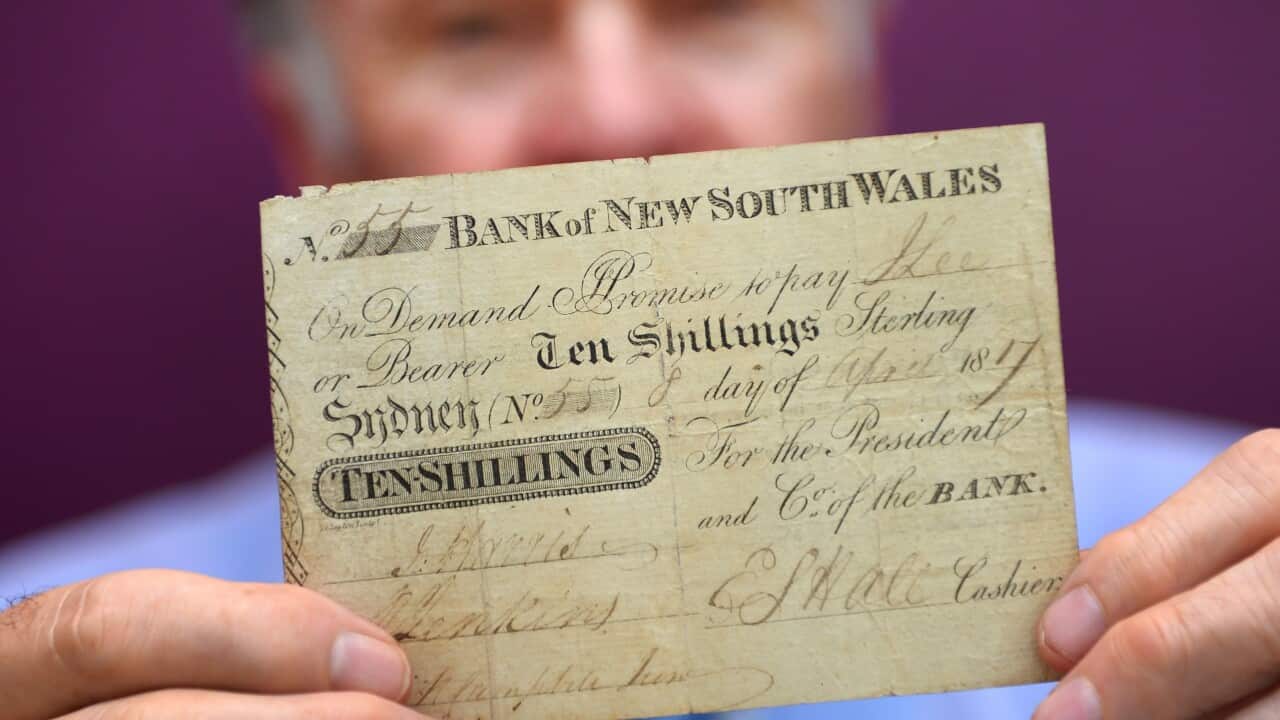 No. 55 BANK of NEW SOUTH WALES
On Demand I Promise to pay J Lee
or Bearer Ten Shillings Sterling
Sydney (No. 55) 8 day of April 1817
TEN-SHILLINGS
For the President
and Co. of the BANK.
J. Harris
R Jenkins
E S Hall Cashier